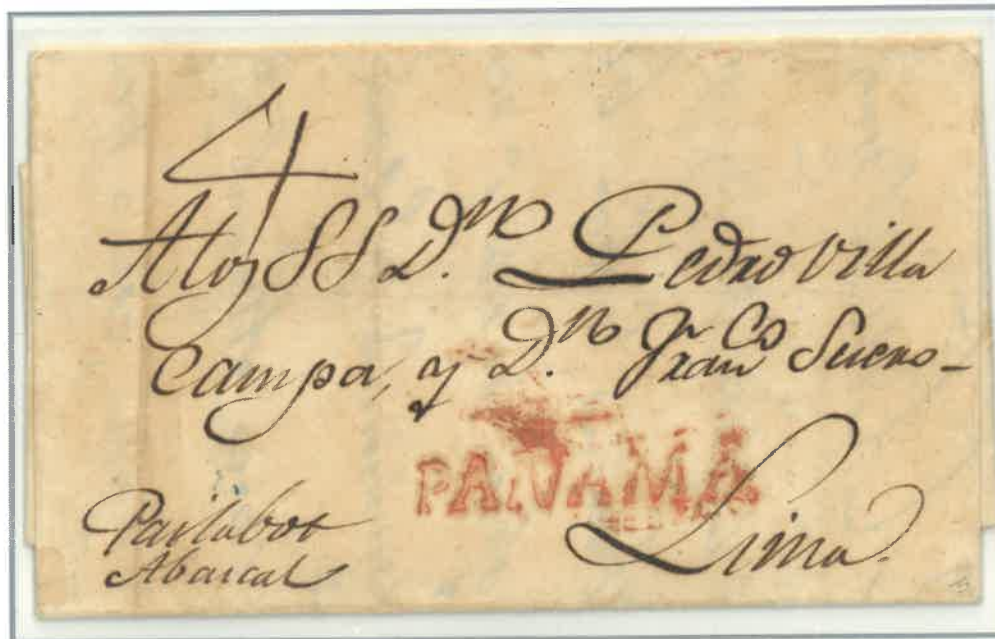 4
A los SS D.n Pedro Villa
Campa, y D.n Fran.co Suero-
PANAMA
Lima.
Pailabot
Abascal